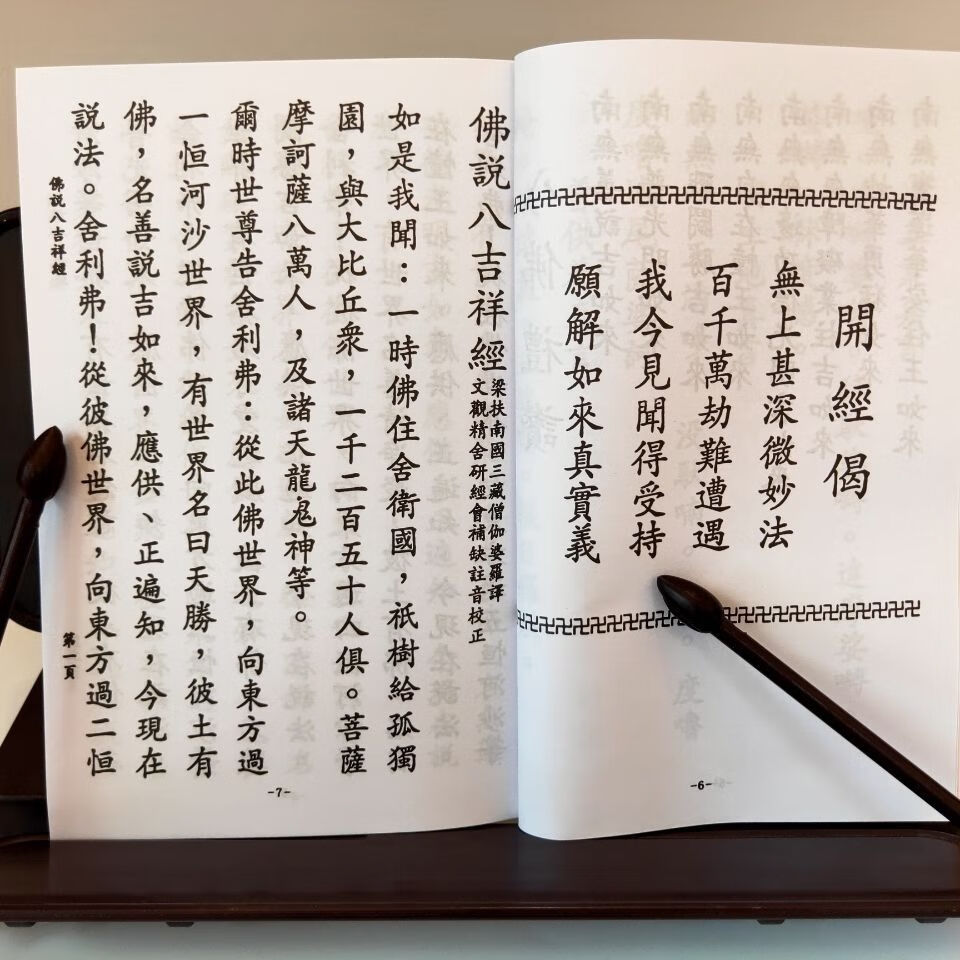 開經偈
無上甚深微妙法
百千萬劫難遭遇
我今見聞得受持
願解如來真實義
-6-
佛説八吉祥經
梁扶南國三藏僧伽婆羅譯
文觀精舍研經會補缺註音校正
如是我聞：一時佛住舍衛國，祇樹給孤獨
園，與大比丘衆，一千二百五十人俱。菩薩
摩訶薩八萬人，及諸天龍鬼神等。
爾時世尊告舍利弗：從此佛世界，向東方過
一恒河沙世界，有世界名曰天勝，彼土有
佛，名善説吉如來，應供、正遍知，今現在
説法。舍利弗！從彼佛世界，向東方過二恒
佛説八吉祥經
第一頁
-7-